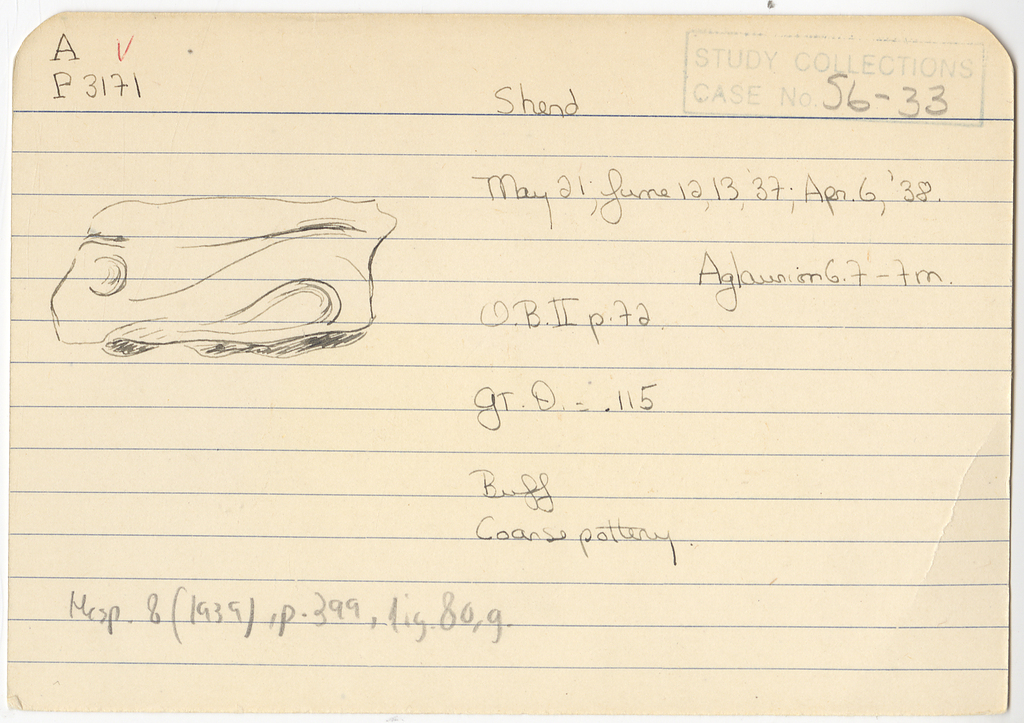 A V
P 3171
STUDY COLLECTIONS
CASE No. 56-33
Sherd
May 21; June 12, 13, '37; Apr. 6, '38.
Aglaurion 6.7-7m.
O.B. II p. 72.
gr. D. = .115
Buff
Coarse pottery.
Hesp. 8 (1939), p. 399, fig. 80, g.